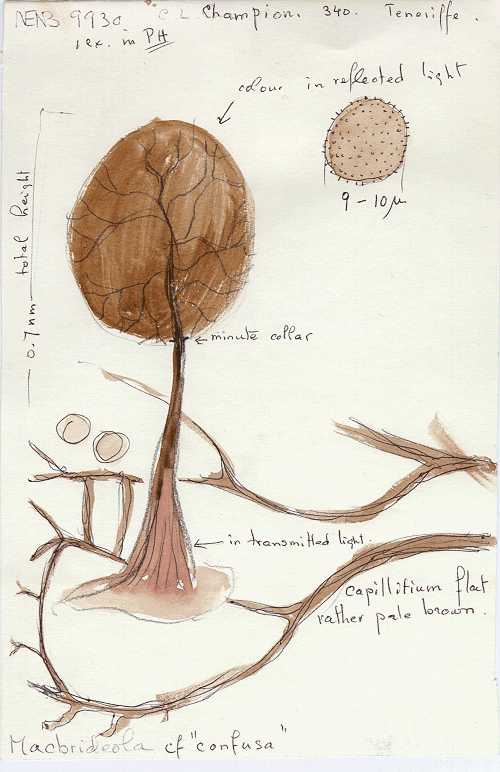 NENB 9930 C L. Champion. 340. Teneriffe.
rex. in PH
colour in reflected light
9 - 10 µ
0.7 mm total height
← minute collar
← in transmitted light.
capillitium flat
rather pale brown.
Macbrideola cf "confusa"